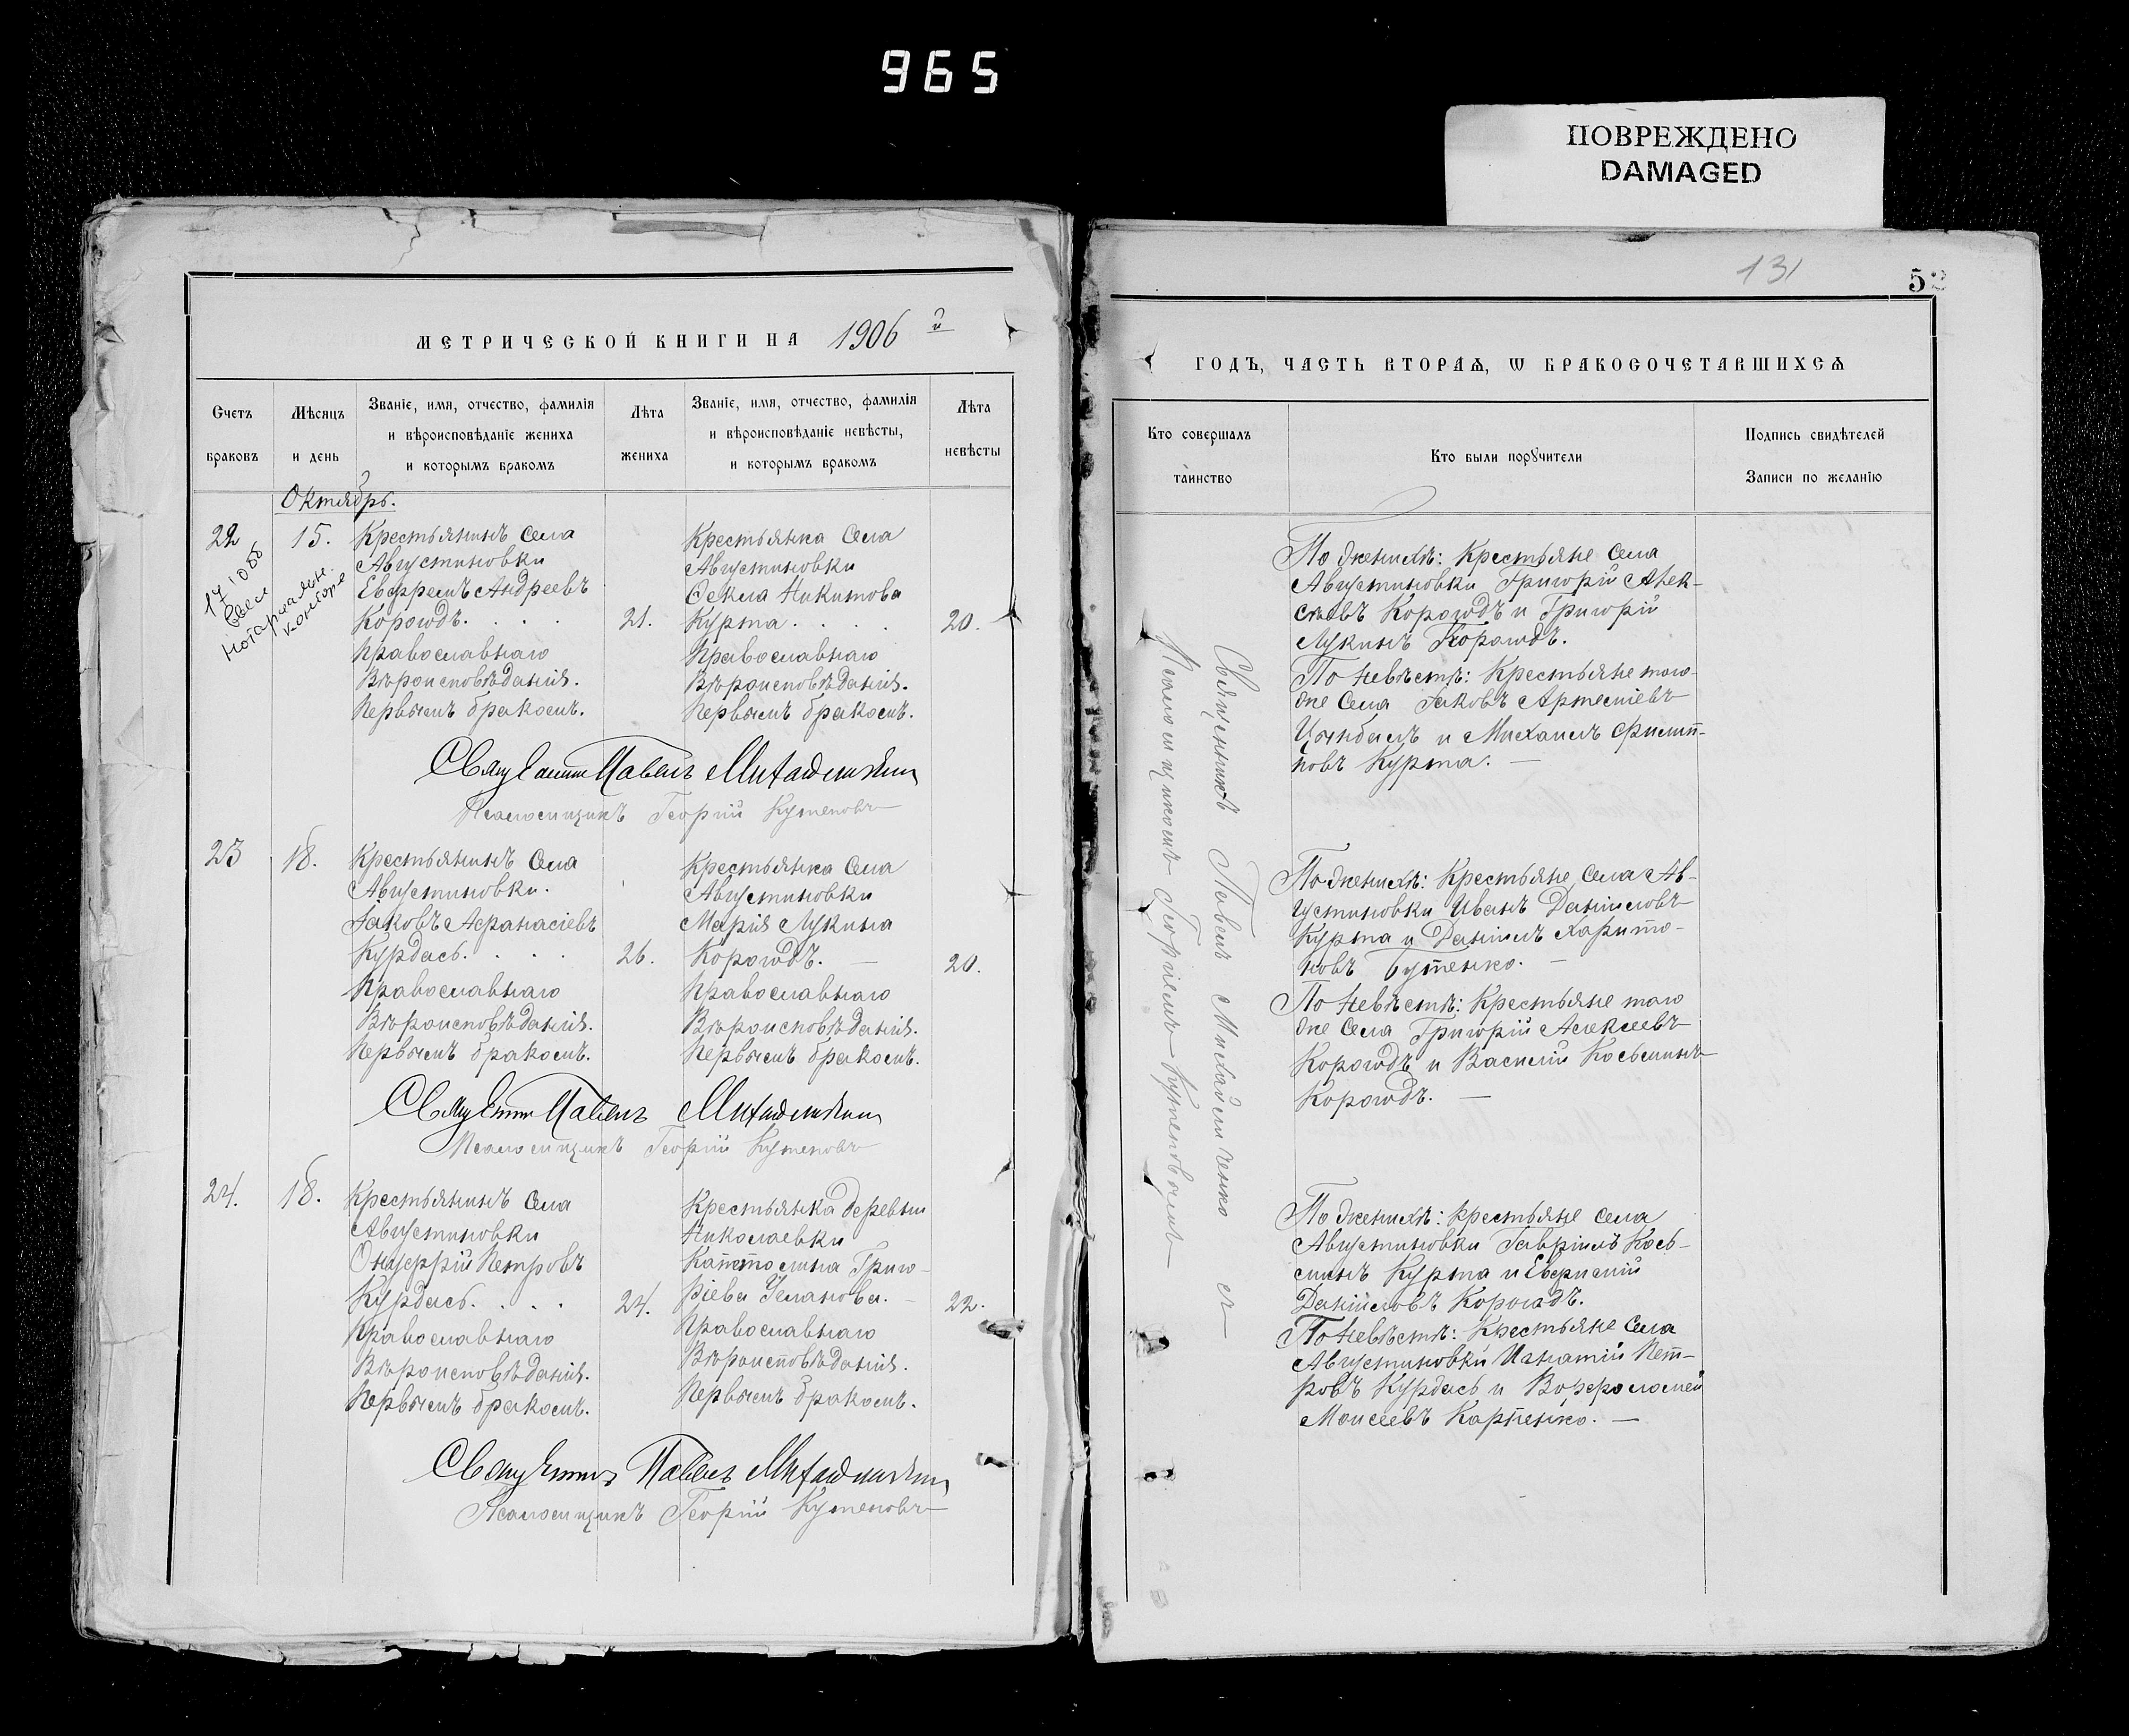 965
ПОВРЕЖДЕНО
DAMAGED
МЕТРИЧЕСКОЙ КНИГИ НА 1906 й
Счетъ браковъ
Мѣсяцъ и день
Званіе, имя, отчество, фамилія
и вѣроисповѣданіе жениха
и которымъ бракомъ
Лѣта жениха
Званіе, имя, отчество, фамилія
и вѣроисповѣданіе невѣсты,
и которымъ бракомъ
Лѣта невѣсты
Октябрь.
22
15.
Крестьянинъ села
Августиновки
Евфремъ Андреевъ
Корогодъ. . . .
Православнаго
Вѣроисповѣданія.
Первымъ бракомъ.
21.
Крестьянка села
Августиновки
Ѳекла Никитова
Курта . . . .
Православнаго
Вѣроисповѣданія.
Первымъ бракомъ.
20.
нотариальн.
конторе
Священникъ Павелъ
Псаломщикъ Георгій Кутеповъ
23
18.
Крестьянинъ села
Августиновки.
Іаковъ Аѳанасіевъ
Курдась. . . .
Православнаго
Вѣроисповѣданія.
Первымъ бракомъ.
26.
Крестьянка села
Августиновки
Марія Лукина
Корогодъ. —
Православнаго
Вѣроисповѣданія.
Первымъ бракомъ.
20.
Священникъ Павелъ
Псаломщикъ Георгій Кутеповъ
24.
18.
Крестьянинъ села
Августиновки
Онуфрій Петровъ
Курдась. . . .
Православнаго
Вѣроисповѣданія.
Первымъ бракомъ.
24.
Крестьянка деревни
Николаевки
Григо-
ріева Уманова. —
Православнаго
Вѣроисповѣданія.
Первымъ бракомъ.
22.
Священникъ Павелъ
Псаломщикъ Георгій Кутеповъ
131
5
ГОДЪ, ЧАСТЬ ВТОРАЯ, Ѡ БРАКОСОЧЕТАВШИХСЯ
Кто совершалъ
таинство
Кто были поручители
Подпись свидѣтелей
Записи по желанію
Священникъ Павелъ съ
Псаломщикомъ Георгіемъ Кутеповымъ
По женихѣ: Крестьяне села
Августиновки Григорій Алек-
сѣевъ Корогодъ и Григорій
Лукинъ Корогодъ.
По невѣстѣ: Крестьяне того-
же села Іаковъ Артеміевъ
Цымбалъ и Михаилъ Филип-
повъ Курта. —
По женихѣ: Крестьяне села Ав-
густиновки Иванъ Даніиловъ
Курта и Даніилъ Харито-
новъ Бутенко. —
По невѣстѣ: Крестьяне того
же села Григорій Алексеевъ
Корогодъ и Василій Косьминъ
Корогодъ. —
По женихѣ: крестьяне села
Августиновки Гавріилъ Кось-
минъ Курта и Евфимій
Даніиловъ Корогодъ.
По невѣстѣ: Крестьяне села
Августиновки Игнатій Пет-
ровъ Курдась и Варфоломей
Моисеевъ Карпенко. —